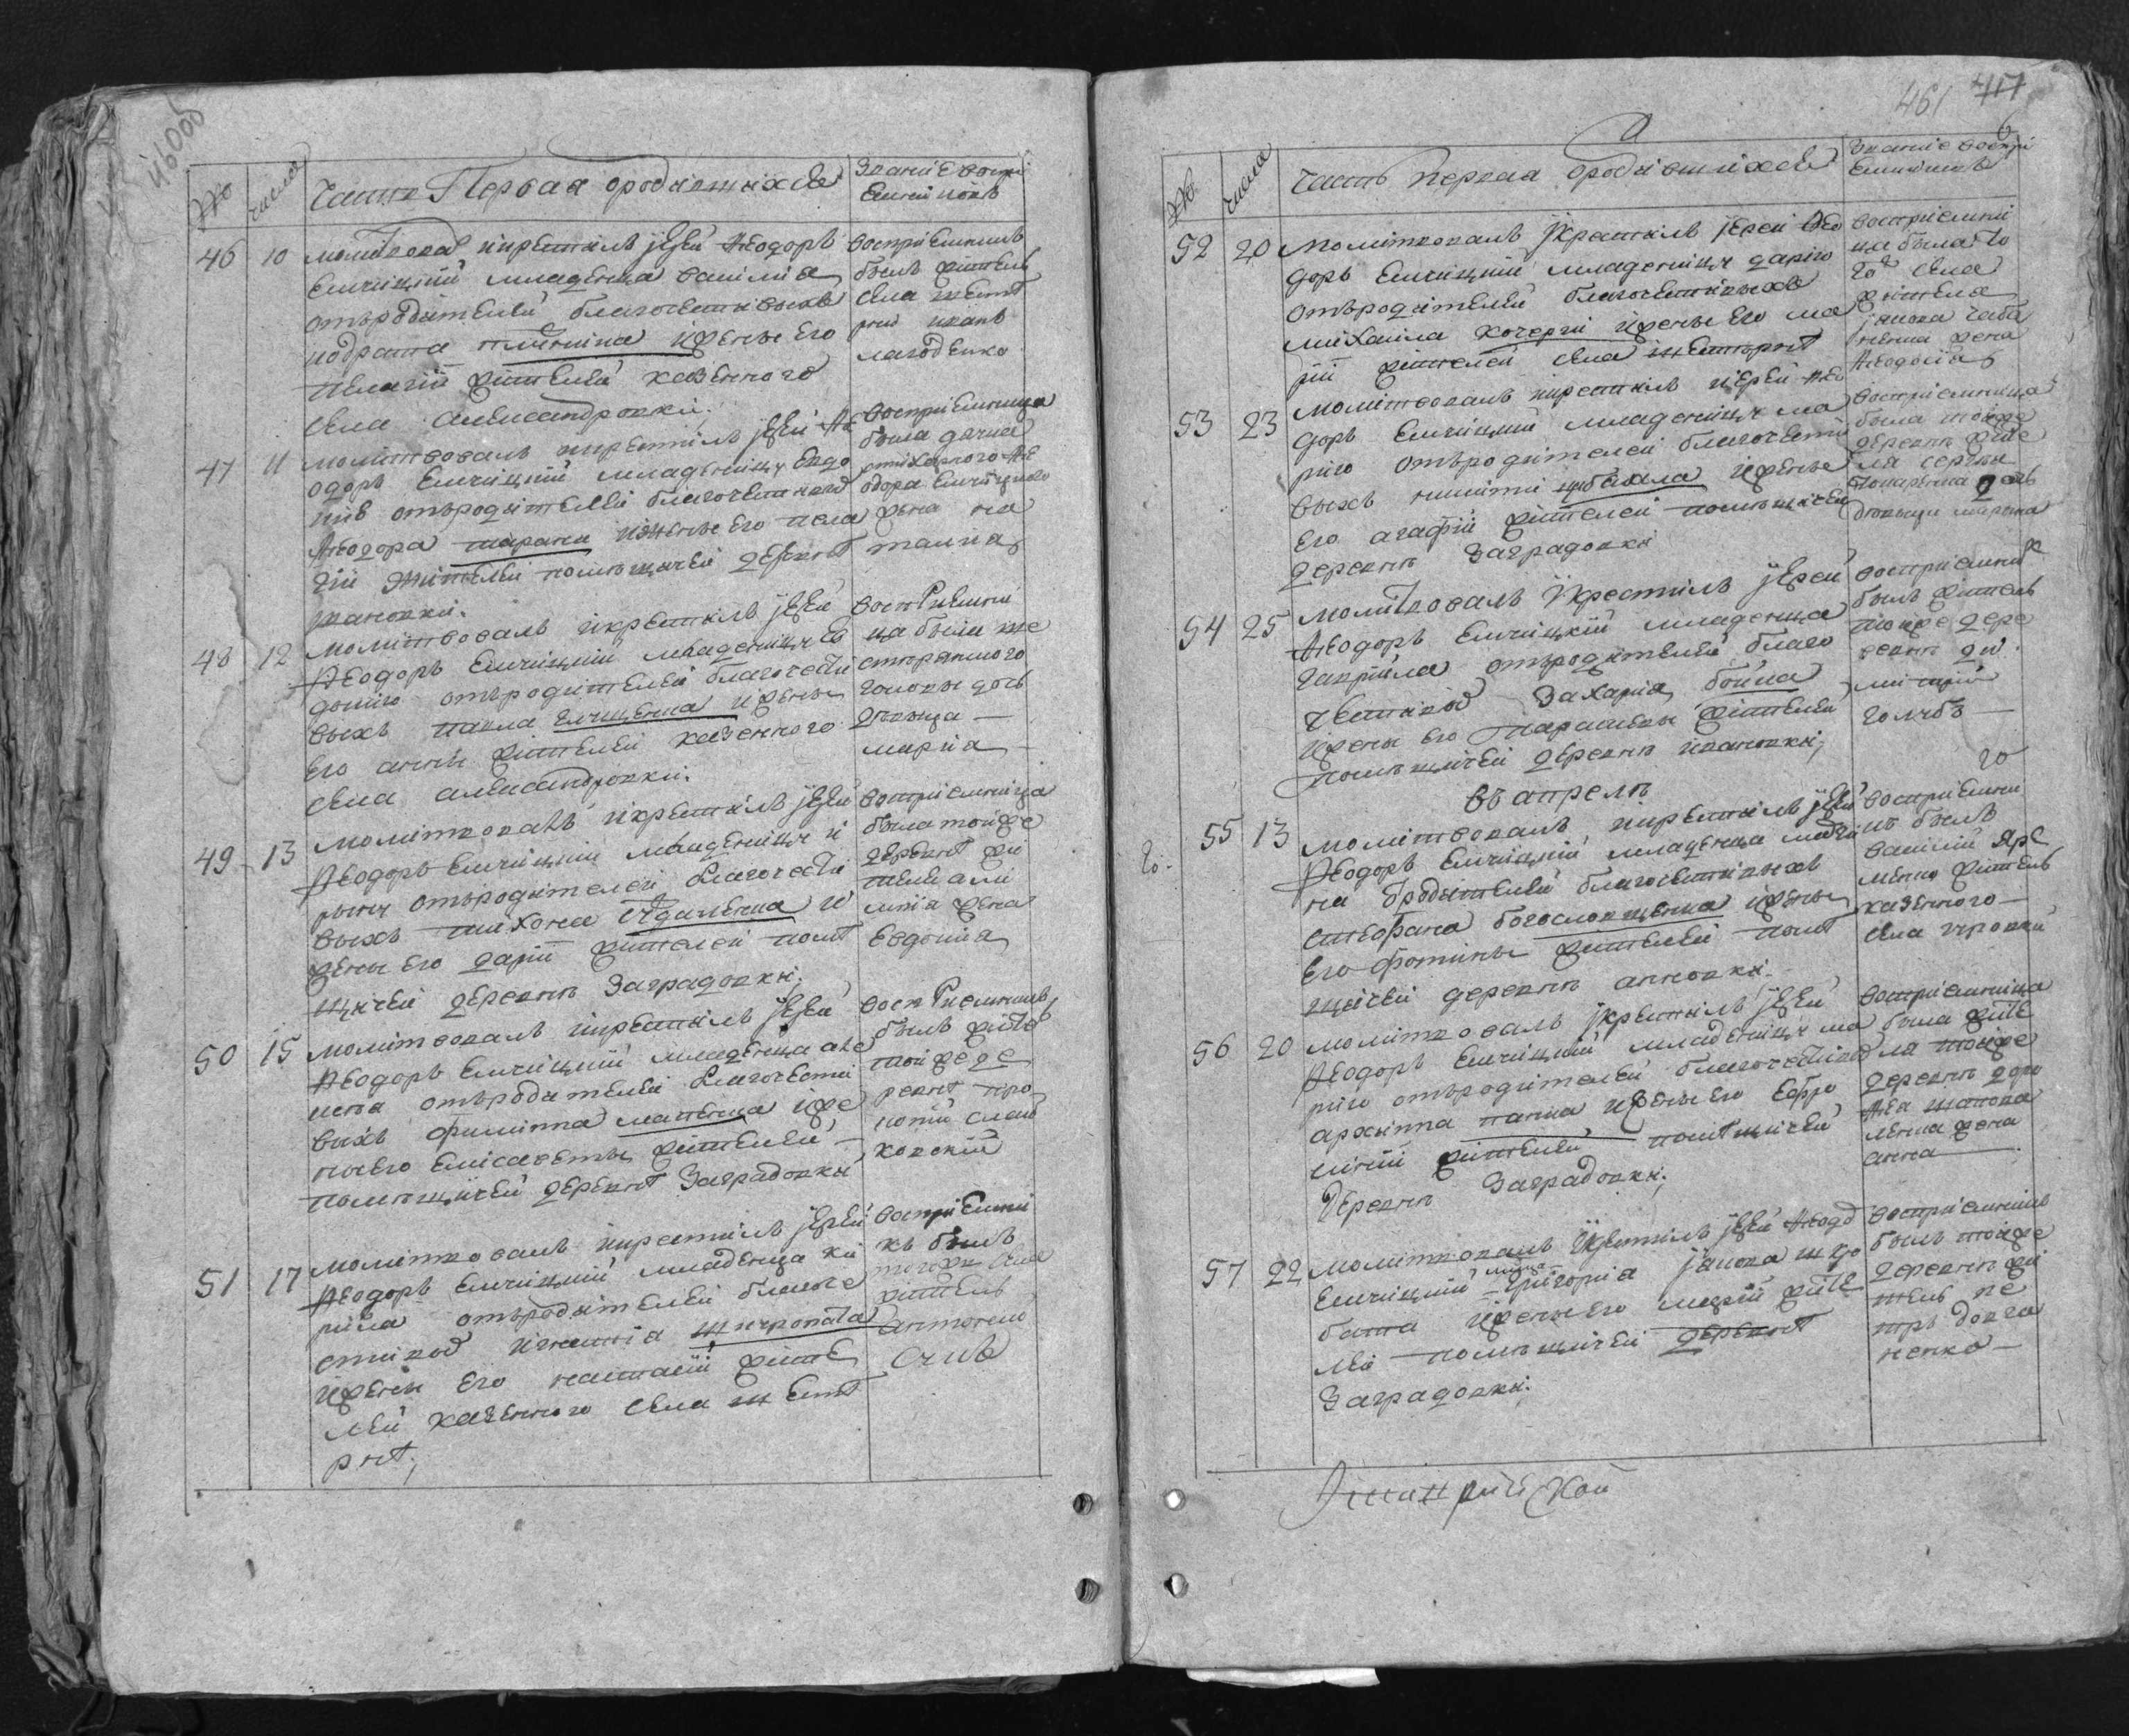 460об
№ числа Часть Первая ородившихся Званiе воспрi
емниковъ
46 10 молитвовал икрестилъ iерей Ѳеодоръ
Емчицкiй младенца василiя
отъродителей благочестивыхъ
кодрата и жены его
Пелагiи жителей казенного
села александровки.
воспрiемникъ
былъ житель
села
иванъ
лагоденко
47 11 молитвовалъ икрестилъ iерей Ѳе
одоръ Емчицкiй младеницу Евдо
отъродителей благочестивых
Ѳеодора тарана ижены его пела
гiи жителей помещичей деревни
ивановки.
воспрiемница
была дячка
Ѳе
одора Емчицкого
жена
48 12 молитвовалъ икрестилъ iерей
Ѳеодоръ Емчицкiй младеницу Ев
докiю отъродителей благочести
выхъ павла ижены
его анны жителей казенного
села александровки.
воспрiемни
ца была
головы дочь
девица —
марiя —
49 13 молитвовалъ икрестилъ iерей
Ѳеодоръ Емчицкiй младеницу и
рину отъродителей благочести
выхъ тихона и
жены его дарiи жителей поме
щичей деревни Заградовки;
воспрiемница
была тойже
деревни жи
теля
жена
Евдокiя
50 15 молитвовалъ икрестилъ iерей
Ѳеодоръ Емчицкiй младенца але
ксея отъродителей благочести
выхъ филиппа иже
ныего елисаветы жителей —
помещичей деревни Заградовки
воспрiемникъ
былъ жите
тойже де
ревни про
копiй слав
ковскiй
51 17 молитвовалъ икрестилъ iерей
Ѳеодоръ Емчицкiй младенца ки
рила отъродителей благоче
стивых игнатiя
ижены его наталiи жите
лей казенного села шесте
рне;
воспрiемни
къ былъ
тогоже села
житель
антонiй
461 417
6
№ числа Часть первая ородившихся Званiе воспрi
емниковъ
52 20 молитвовалъ iкрестилъ iерей Ѳео
доръ Емчицкiй младеницу дарiю
отъродителей благочестивыхъ
михаила кочерги ижены его ма
рiи жителей села шестерне
воспрiемни
ца была то
го села
жителя
якова чаба
ненка жена
Ѳеодосiя
53 23 молитвовалъ икрестилъ iерей Ѳео
доръ Емчицкiй младеницу ма
рiю отъродителей благочести
выхъ никиты цибала ижены
его агафiи жителей помещичей
деревни Заградовки
воспрiемница
была тойже
деревни жите
ля сергея
дочь
девица марина
54 25 молитвовалъ iкрестилъ iерей
Ѳеодоръ Емчицкiй младенца
гаврiила отъродителей благо
честивых Захарiя бойка
ижены его параскевы жителей
помещичей деревни ивановки;
воспрiемник
былъ житель
тойже дере
вни ди
митрiй
голубъ —
въ апреле
55 13 молитвовалъ, икрестилъ iерей
Ѳеодоръ Емчицкiй младенца марти
на отродителей благочестивыхъ
стефана богословщенка ижены
его фотины жителей поме
щичей деревни анновки.
воспрiемни
къ былъ
василiй Яре
менко житель
казенного —
села
56 20 молитвовалъ iкрестилъ iерей
Ѳеодоръ Емчицкiй младеницу ма
рiю отъродителей благочестивых
архиппа ижены его Евфро
синiи жителей помещичей
деревни Заградовки;
воспрiемница
была жите
ля тойже
деревни доро
Ѳея шапова
ленка жена
анна —
57 22 молитвовалъ iкрестилъ iерей Ѳеодо
Емчицкiй григорiя iакова
ижены его марiи жите
лей помещичей деревни
Заградовки;
воспрiемникъ
былъ тойже
деревни жи
тель пе
тръ довга
ненко —